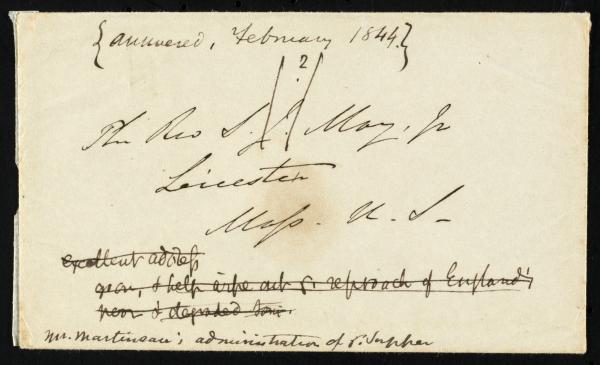 {answered, February 1844.}
2
The Rev S. J. May, Jr
Leicester
Mass. U. S.
excellent address
& help wipe out reproach of England's
poor & degraded
Mr. Martineau's administration of Supper